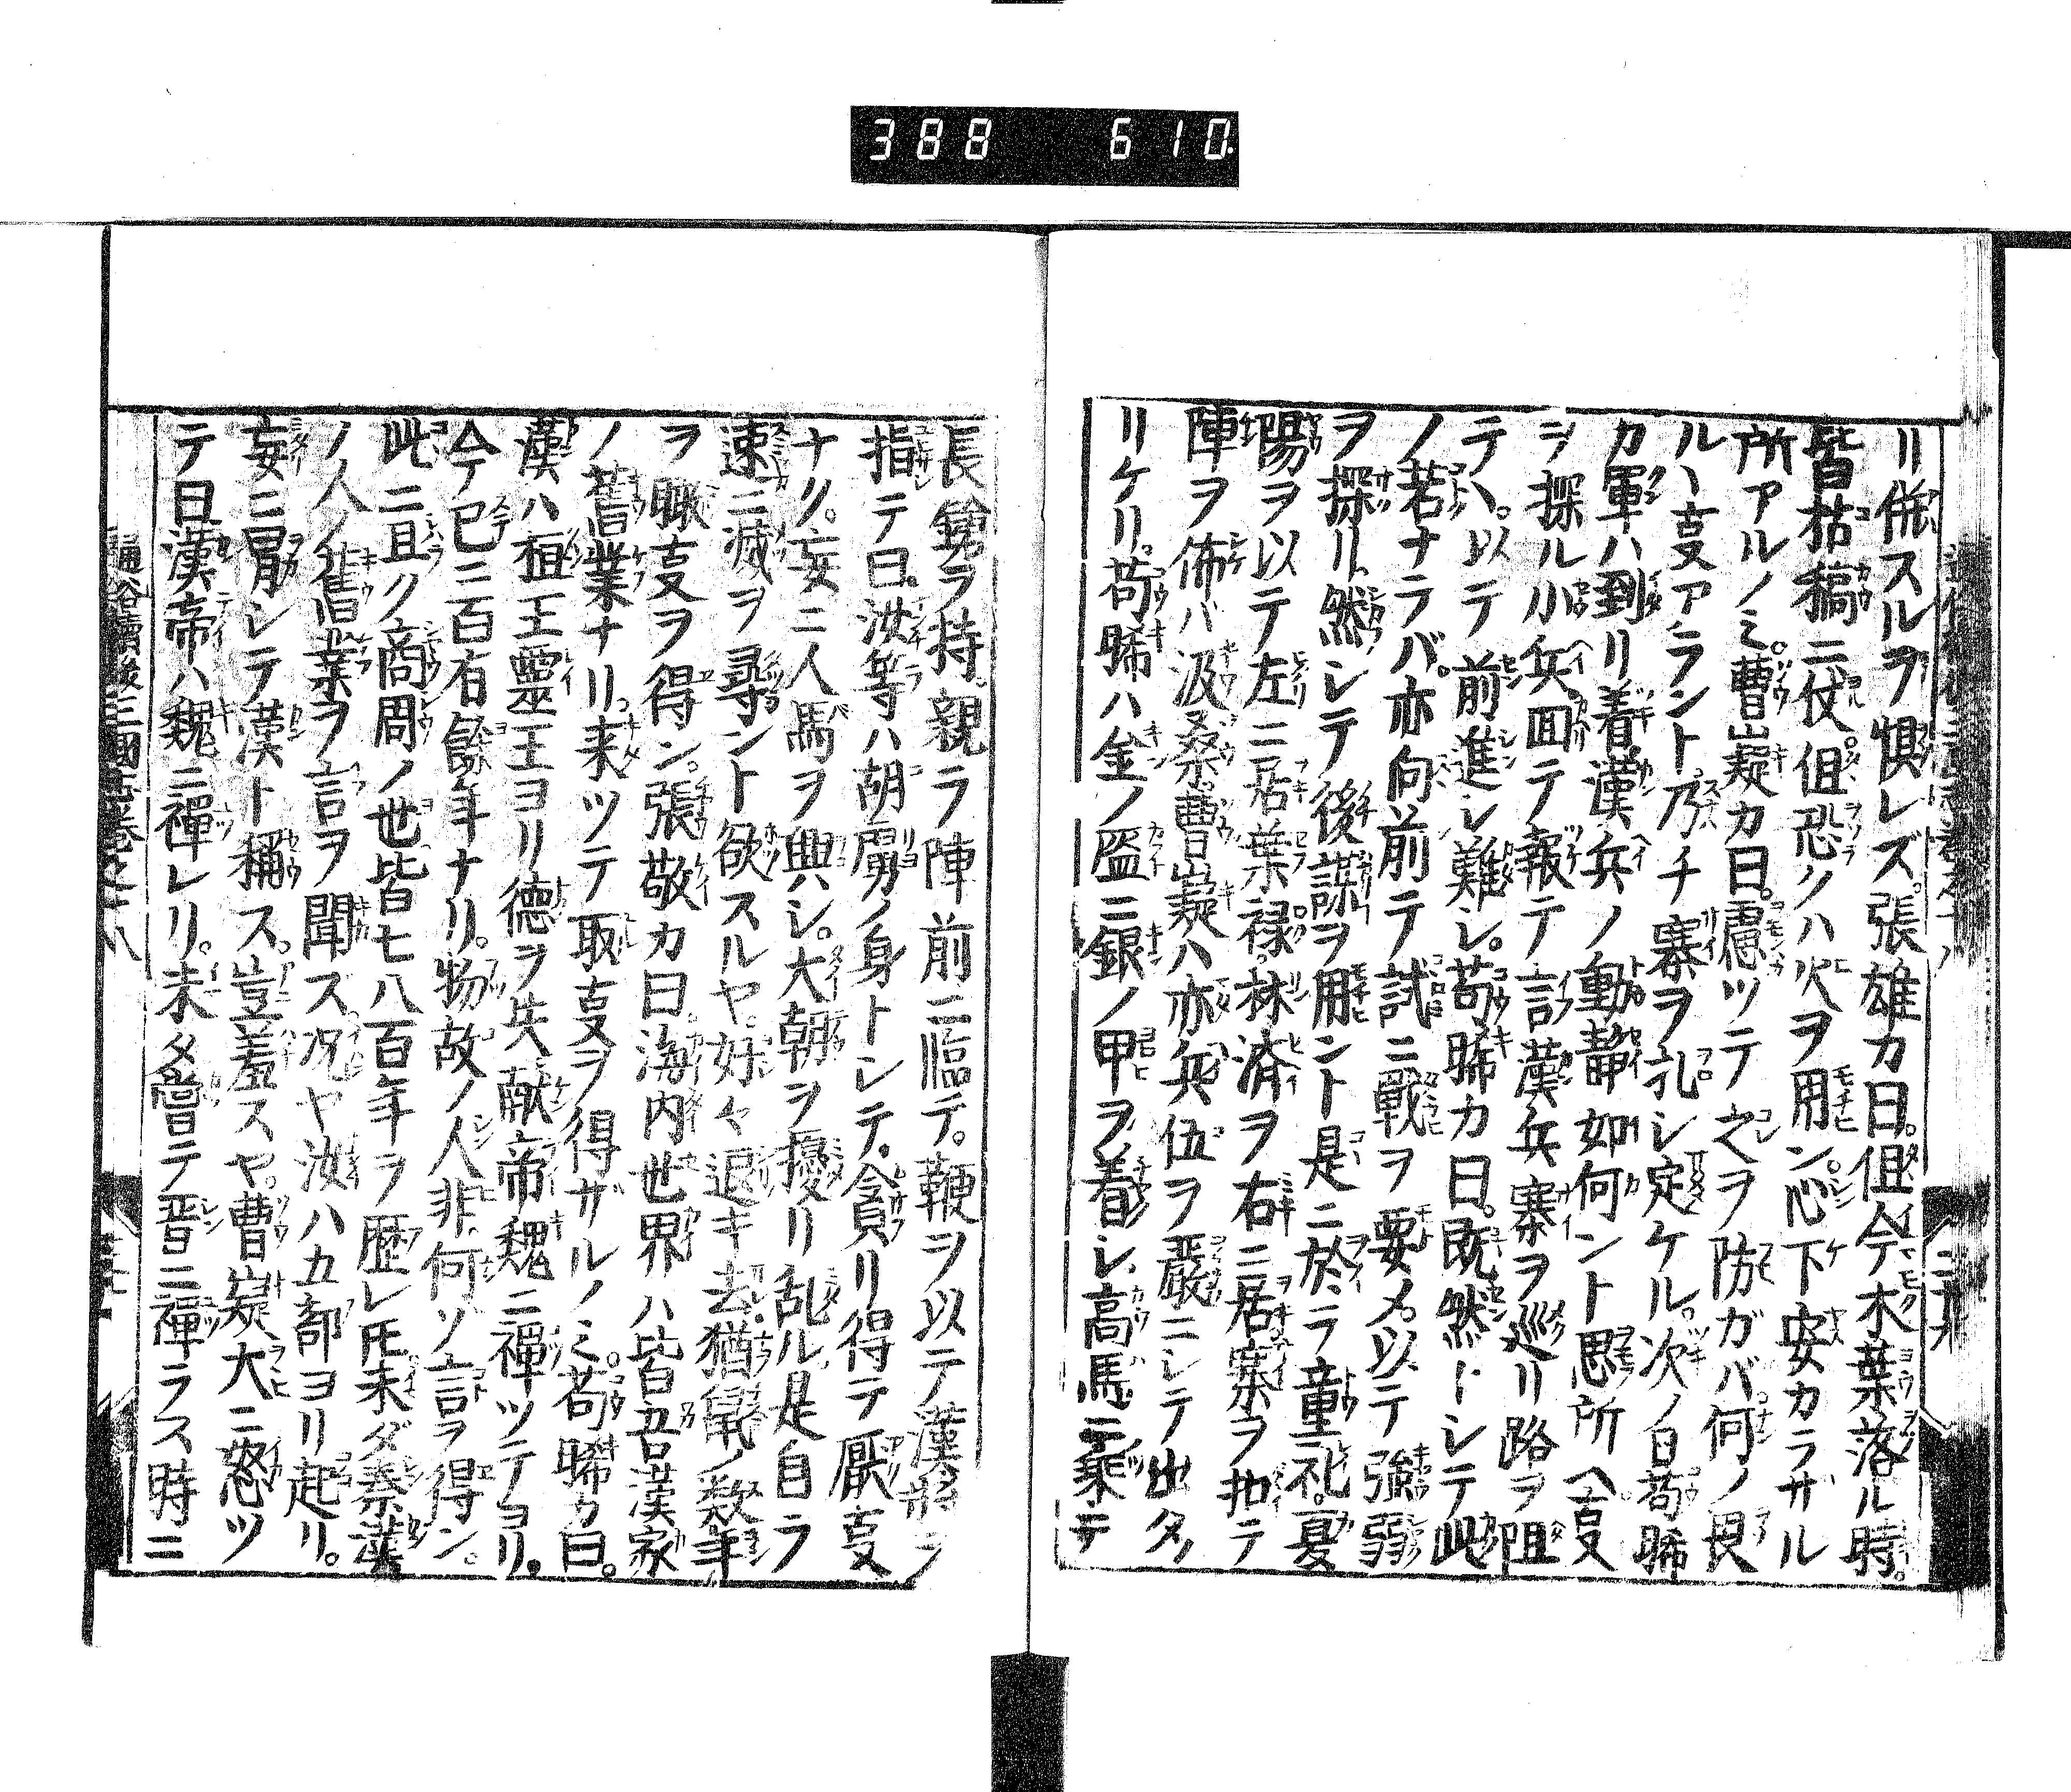 388 610
リ備スルヲ惧レズ。張雄カ曰。但今木葉落ル時。
皆枯槁ニ仗。但恐クハ火ヲ用ン。心下安カラザル
所アルノミ。曹嶷カ曰。慮ツテ之ヲ防ガバ。何ノ畏
ルヽ㕝アラント。乃チ寨ヲ札シ定ケル。次ノ日苟晞
カ軍ハ到リ着漢兵ノ動静如何ント思所ヘ㕝
ヲ探ル小兵面テ報テ言漢兵寨ヲ巡リ路ヲ阻
テヽ。以テ前進シ難シ。苟晞カ曰。既然トシテ此
ノ若ナラバ。亦向前テ試ニ戰ヲ要メ。以テ強弱
ヲ探ル。然シテ後謀ヲ用ント是ニ於ヲラ童礼。夏
陽ヲ以テ左ニ居葉禄。林済ヲ右ニ居寨ヲ拠テ
陣ヲ佈バ汲桑。曹嶷ハ亦兵伍ヲ嚴ニシテ出タ
リケリ。苟晞ハ金ノ盔ニ銀ノ甲ヲ着シ高馬ニ乗テ
長鎗ヲ持。親ラ陣前ニ臨デ。鞭ヲ以テ漢將ヲ
指テ曰。汝等ハ胡虜ノ身トシテ。貪リ得テ厭㕝
ナリ。妄ニ人馬ヲ興ハシ。大朝ヲ擾リ乱ル是自ラ
速ニ滅ヲ尋ント欲スルヤ。好々退キ去。猶㒵ノ数年
ヲ聴㕝ヲ得ン。張敬カ曰。海内世界ハ皆吾漢家
ノ舊業ナリ。来ツテ取㕝ヲ得ザルノミ。苟晞カ曰。
漢ハ桓王靈王ヨリ德ヲ失献帝魏ニ禪ツテヨリ。
今已ニ百有餘年ナリ。物故ノ人非。何ソ言ヲ得ン。
此ニ且ク商周ノ世皆七八百年ヲ歴レ𪜈未ダ秦漢
ノ人ノ舊業ヲ言ヲ聞ス。况ヤ汝ハ五部ヨリ起リ。
妄ニ冒シテ漢ト稱ス。豈羞スヤ。曹嶷大ニ怒ツ
テ曰漢帝ハ魏ニ禪レリ。未タ嘗テ晋ニ禪ラス時ニ
通俗續後三國志卷之十八